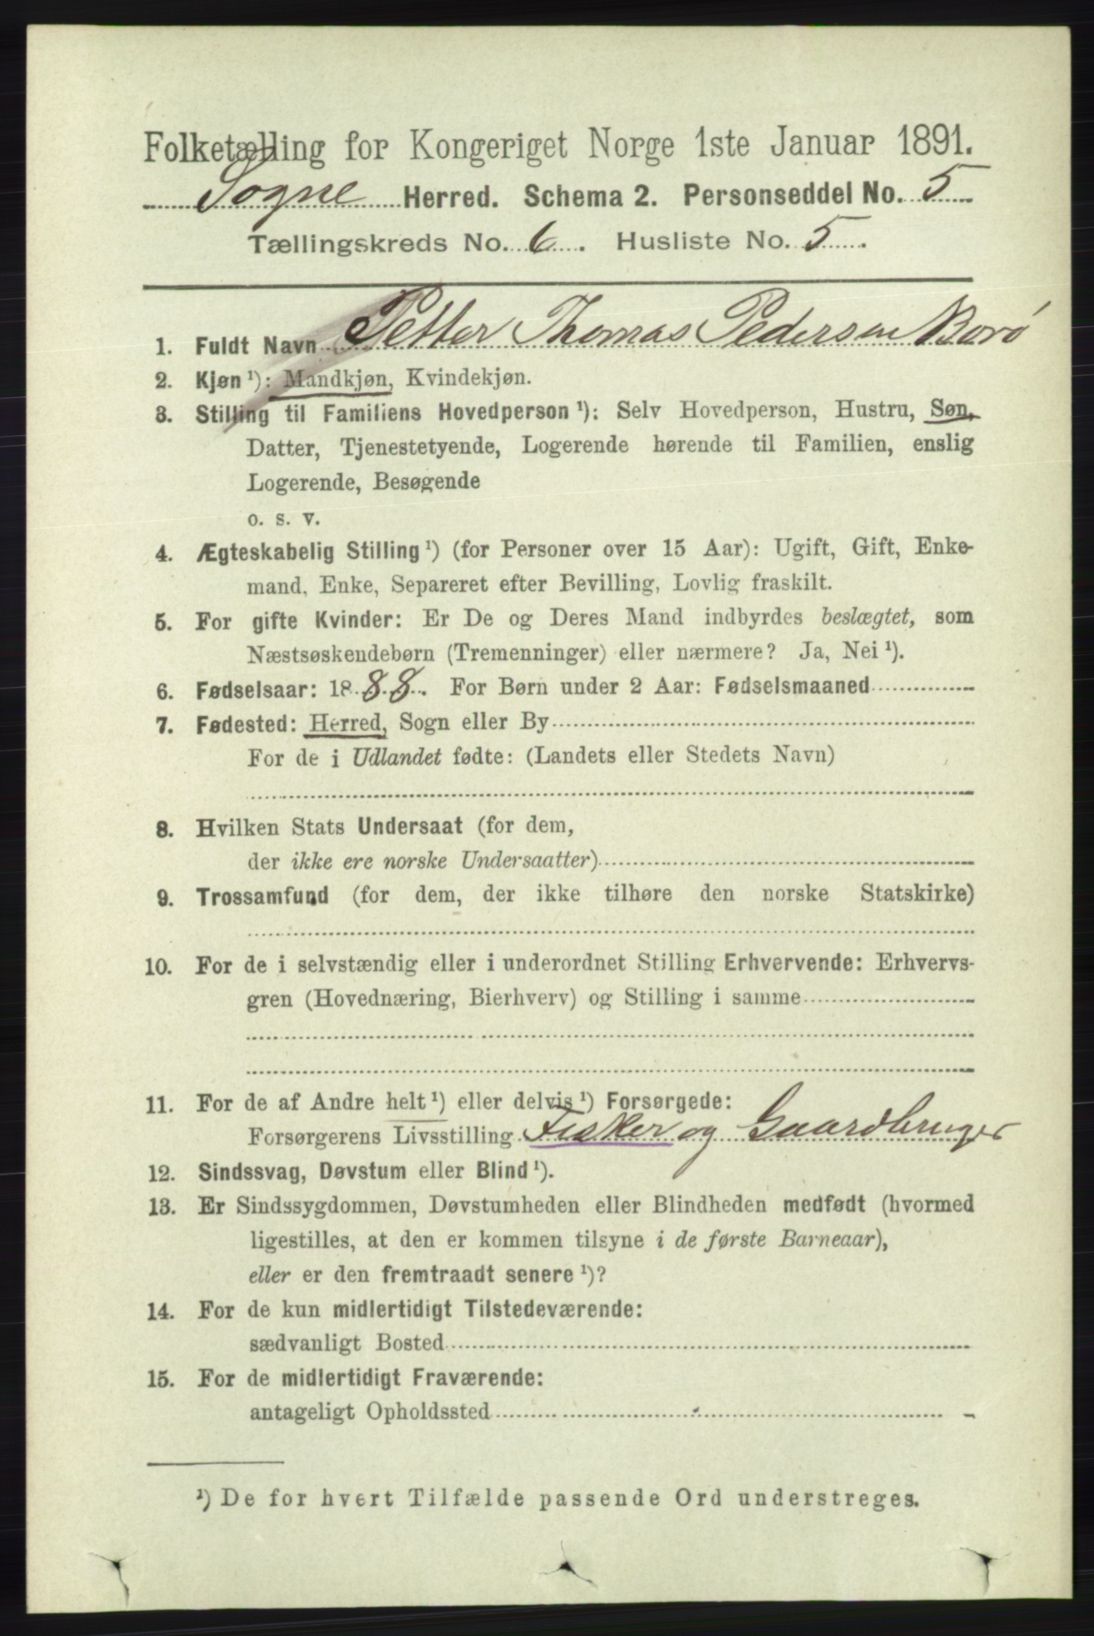 Folketælling for Kongeriget Norge 1ste Januar 1891.
Sogne Herred. Schema 2. Personseddel No. 5
Tællingskreds No. 6. Husliste No. 5.
1. Fuldt Navn Petter Thomas Pedersen Borø
2. Kjøn ¹): Mandkjøn, Kvindekjøn.
3. Stilling til Familiens Hovedperson ¹): Selv Hovedperson, Hustru, Søn,
Datter, Tjenestetyende, Logerende hørende til Familien, enslig
Logerende, Besøgende
o. s. v.
4. Ægteskabelig Stilling ¹) (for Personer over 15 Aar): Ugift, Gift, Enke-
mand, Enke, Separeret efter Bevilling, Lovlig fraskilt.
5. For gifte Kvinder: Er De og Deres Mand indbyrdes beslægtet, som
Næstsøskendebørn (Tremenninger) eller nærmere? Ja, Nei ¹).
6. Fødselsaar: 1888. For Børn under 2 Aar: Fødselsmaaned
7. Fødested: Herred, Sogn eller By
For de i Udlandet fødte: (Landets eller Stedets Navn)
8. Hvilken Stats Undersaat (for dem,
der ikke ere norske Undersaatter)
9. Trossamfund (for dem, der ikke tilhøre den norske Statskirke)
10. For de i selvstændig eller i underordnet Stilling Erhvervende: Erhvervs-
gren (Hovednæring, Bierhverv) og Stilling i samme
11. For de af Andre helt ¹) eller delvis ¹) Forsørgede:
Forsørgerens Livsstilling Fisker og Gaardbruger
12. Sindssvag, Døvstum eller Blind ¹).
13. Er Sindssygdommen, Døvstumheden eller Blindheden medfødt (hvormed
ligestilles, at den er kommen tilsyne i de første Barneaar),
eller er den fremtraadt senere ¹)?
14. For de kun midlertidigt Tilstedeværende:
sædvanligt Bosted
15. For de midlertidigt Fraværende:
antageligt Opholdssted
¹) De for hvert Tilfælde passende Ord understreges.